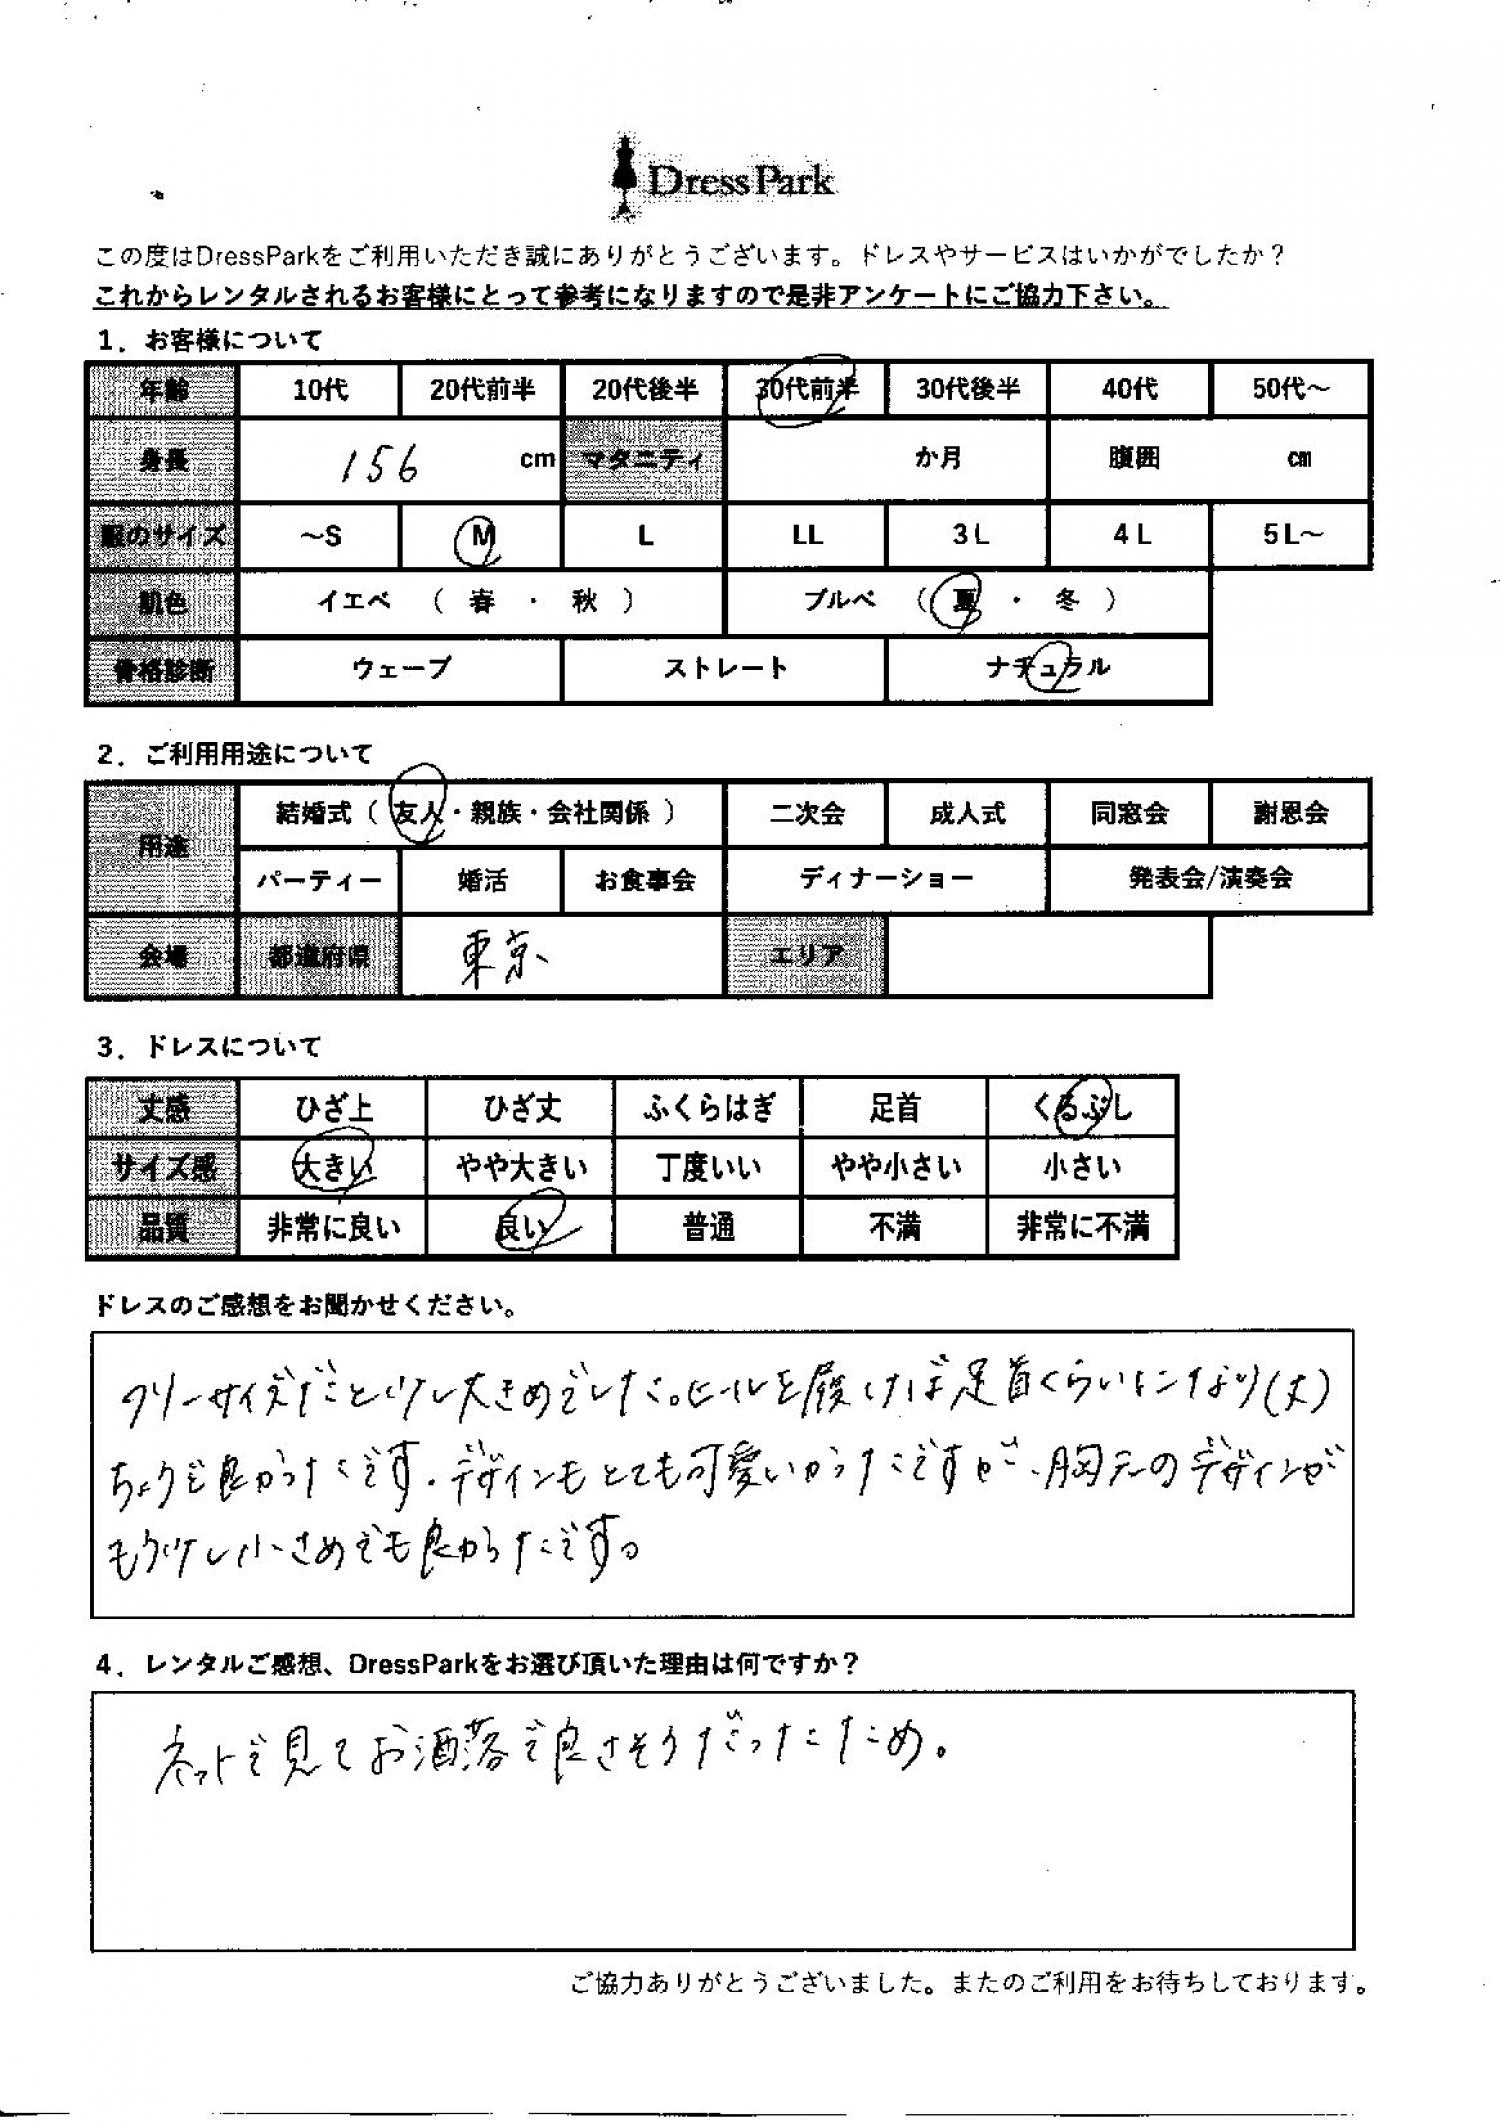 DressPark
この度はDressParkをご利用いただき誠にありがとうございます。ドレスやサービスはいかがでしたか？
これからレンタルされるお客様にとって参考になりますので是非アンケートにご協力下さい。
1．お客様について
年齢 10代 20代前半 20代後半 30代前半 30代後半 40代 50代～
身長 156 cm マタニティ か月 腹囲 cm
服のサイズ ～S M L LL 3L 4L 5L～
肌色 イエベ （ 春 ・ 秋 ） ブルベ （ 夏 ・ 冬 ）
骨格診断 ウェーブ ストレート ナチュラル
2．ご利用用途について
用途 結婚式（ 友人・親族・会社関係 ） 二次会 成人式 同窓会 謝恩会
パーティー 婚活 お食事会 ディナーショー 発表会/演奏会
会場 都道府県 東京 エリア
3．ドレスについて
丈感 ひざ上 ひざ丈 ふくらはぎ 足首 くるぶし
サイズ感 大きい やや大きい 丁度いい やや小さい 小さい
品質 非常に良い 良い 普通 不満 非常に不満
ドレスのご感想をお聞かせください。
フリーサイズだと少し大きめでした。ヒールを履けば足首くらいになり(丈)
ちょうど良かったです。デザインもとても可愛いかったですが、胸元のデザインが
もう少し小さめでも良かったです。
4．レンタルご感想、DressParkをお選び頂いた理由は何ですか？
ネットで見てお洒落で良さそうだったため。
ご協力ありがとうございました。またのご利用をお待ちしております。